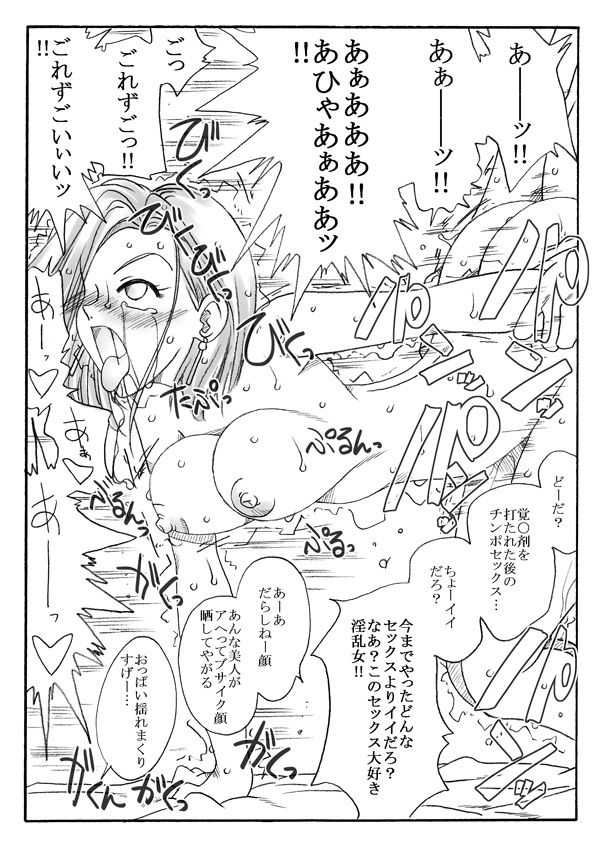 あーーッ!!
あぁーーッ!!
あぁあああ!!
あひゃあぁああッ
!!
ごっ
ごれずごっ!!
ごれずごいぃいッ
!!
びくっ
びーびーっ
びくっ
パン
パン
パン
パン
パン
たぷっ
ぷるんっ
ぶるんっ
ぷるっ
あーっ♡
あぁ♡
あーっ♡
どーだ?
覚〇剤を
打たれた後の
チンポセックス…
ちょーイイ
だろ?
今までやったどんな
セックスよりイイだろ?
なあ?このセックス大好き
淫乱女!!
あーあ
だらしねー顔
あんな美人が
アヘってブサイク顔
晒してやがる
おっぱい揺れまくり
すげー…
がくっ
がくっ
がくんっ